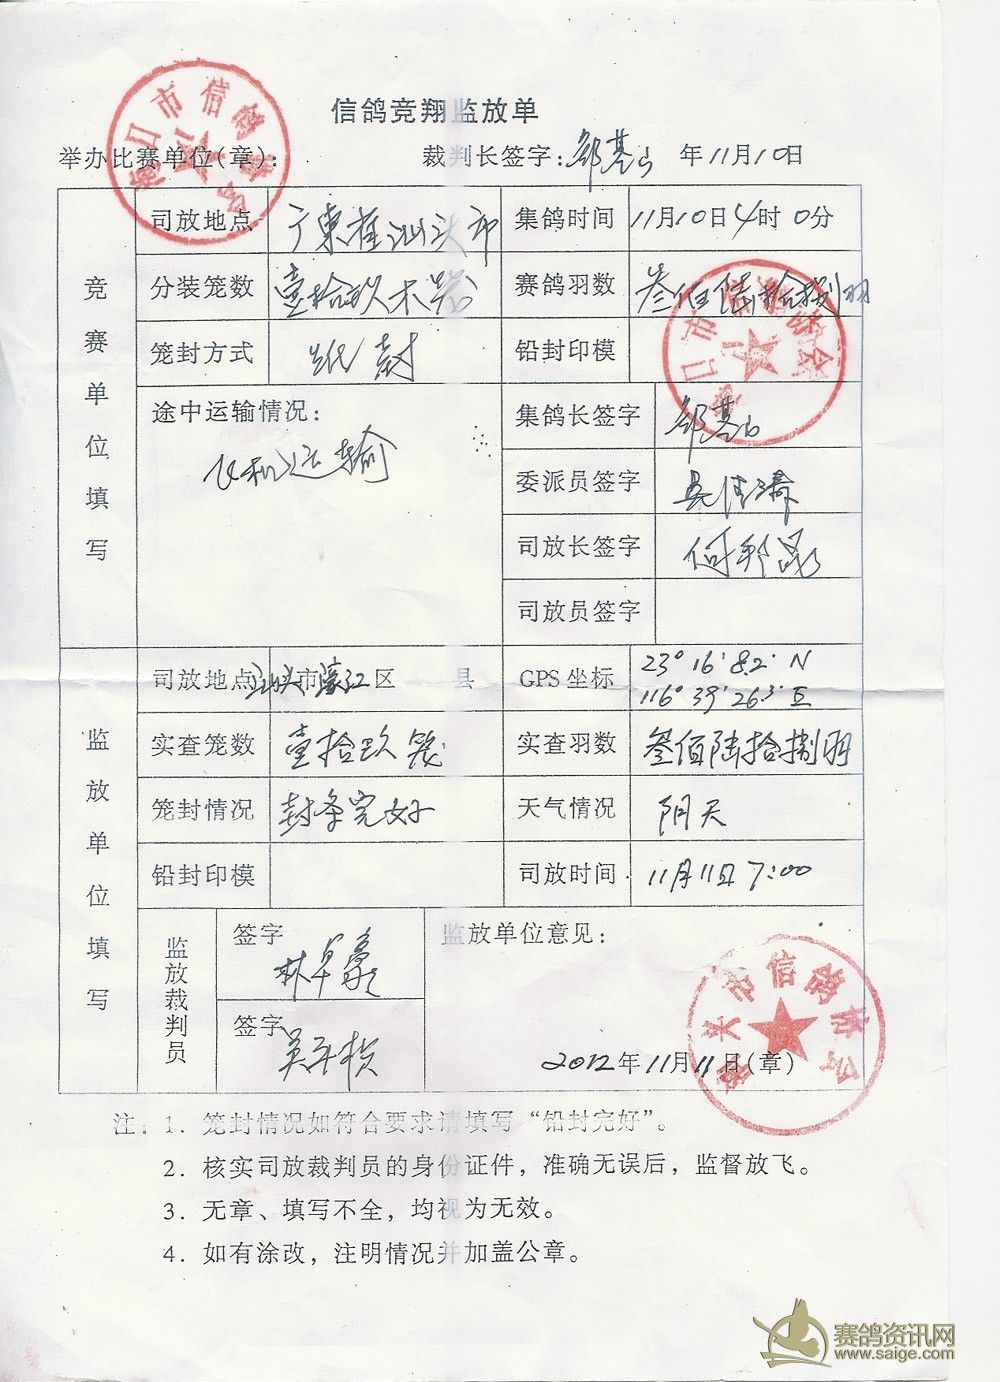 信鸽竞翔监放单
举办比赛单位(章): 裁判长签字: 年11月10日
竞赛单位填写
司放地点 广东省汕头市 集鸽时间 11月10日4时0分
分装笼数 壹拾玖木笼 赛鸽羽数 叁佰陆拾捌羽
笼封方式 纸封 铅封印模
途中运输情况: 飞机运输
集鸽长签字
委派员签字
司放长签字
司放员签字
监放单位填写
司放地点 汕头市濠江区 县 GPS坐标 23°16′8.2″N
116°39′26.3″E
实查笼数 壹拾玖笼 实查羽数 叁佰陆拾捌羽
笼封情况 封条完好 天气情况 阴天
铅封印模 司放时间 11月11日7:00
监放裁判员
签字 林卓豪
签字
监放单位意见:
2012年11月11日(章)
注: 1. 笼封情况如符合要求请填写“铅封完好”。
2. 核实司放裁判员的身份证件，准确无误后，监督放飞。
3. 无章、填写不全，均视为无效。
4. 如有涂改，注明情况并加盖公章。
赛鸽资讯网
www.saige.com